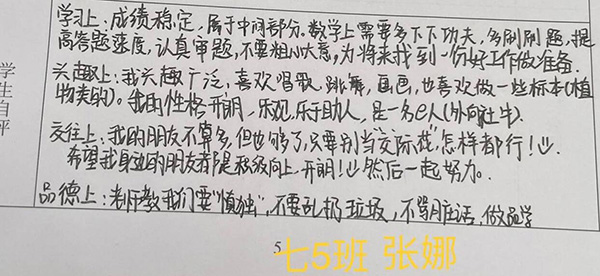 学生自评
学习上：成绩稳定，属于中间部分。数学上需要多下下功夫，多刷刷题，提
高答题速度，认真审题，不要粗心大意，为将来找到一份好工作做准备.
兴趣上：我兴趣广泛，喜欢唱歌，跳舞，画画，也喜欢做一些标本(植
物类的)。我的性格开朗，乐观，乐于助人，是一名e人(外向社牛).
交往上：我的朋友不算多，但也够了，只要别当"交际花"，怎样都行！
希望我身边的朋友都是积极向上，开朗！然后一起努力。
品德上：老师教我们要"慎独"，不要乱扔垃圾，不骂脏话，做品学
5
七5班 张娜